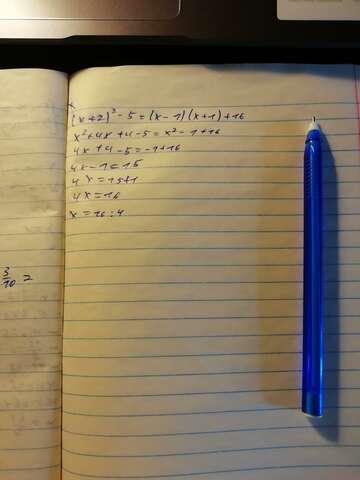 (x+2)² - 5 = (x-1)(x+1)+16
x²+4x+4-5=x²-1+16
4x+4-5=-1+16
4x-1=15
4x=15+1
4x=16
x=16:4
3/10 =